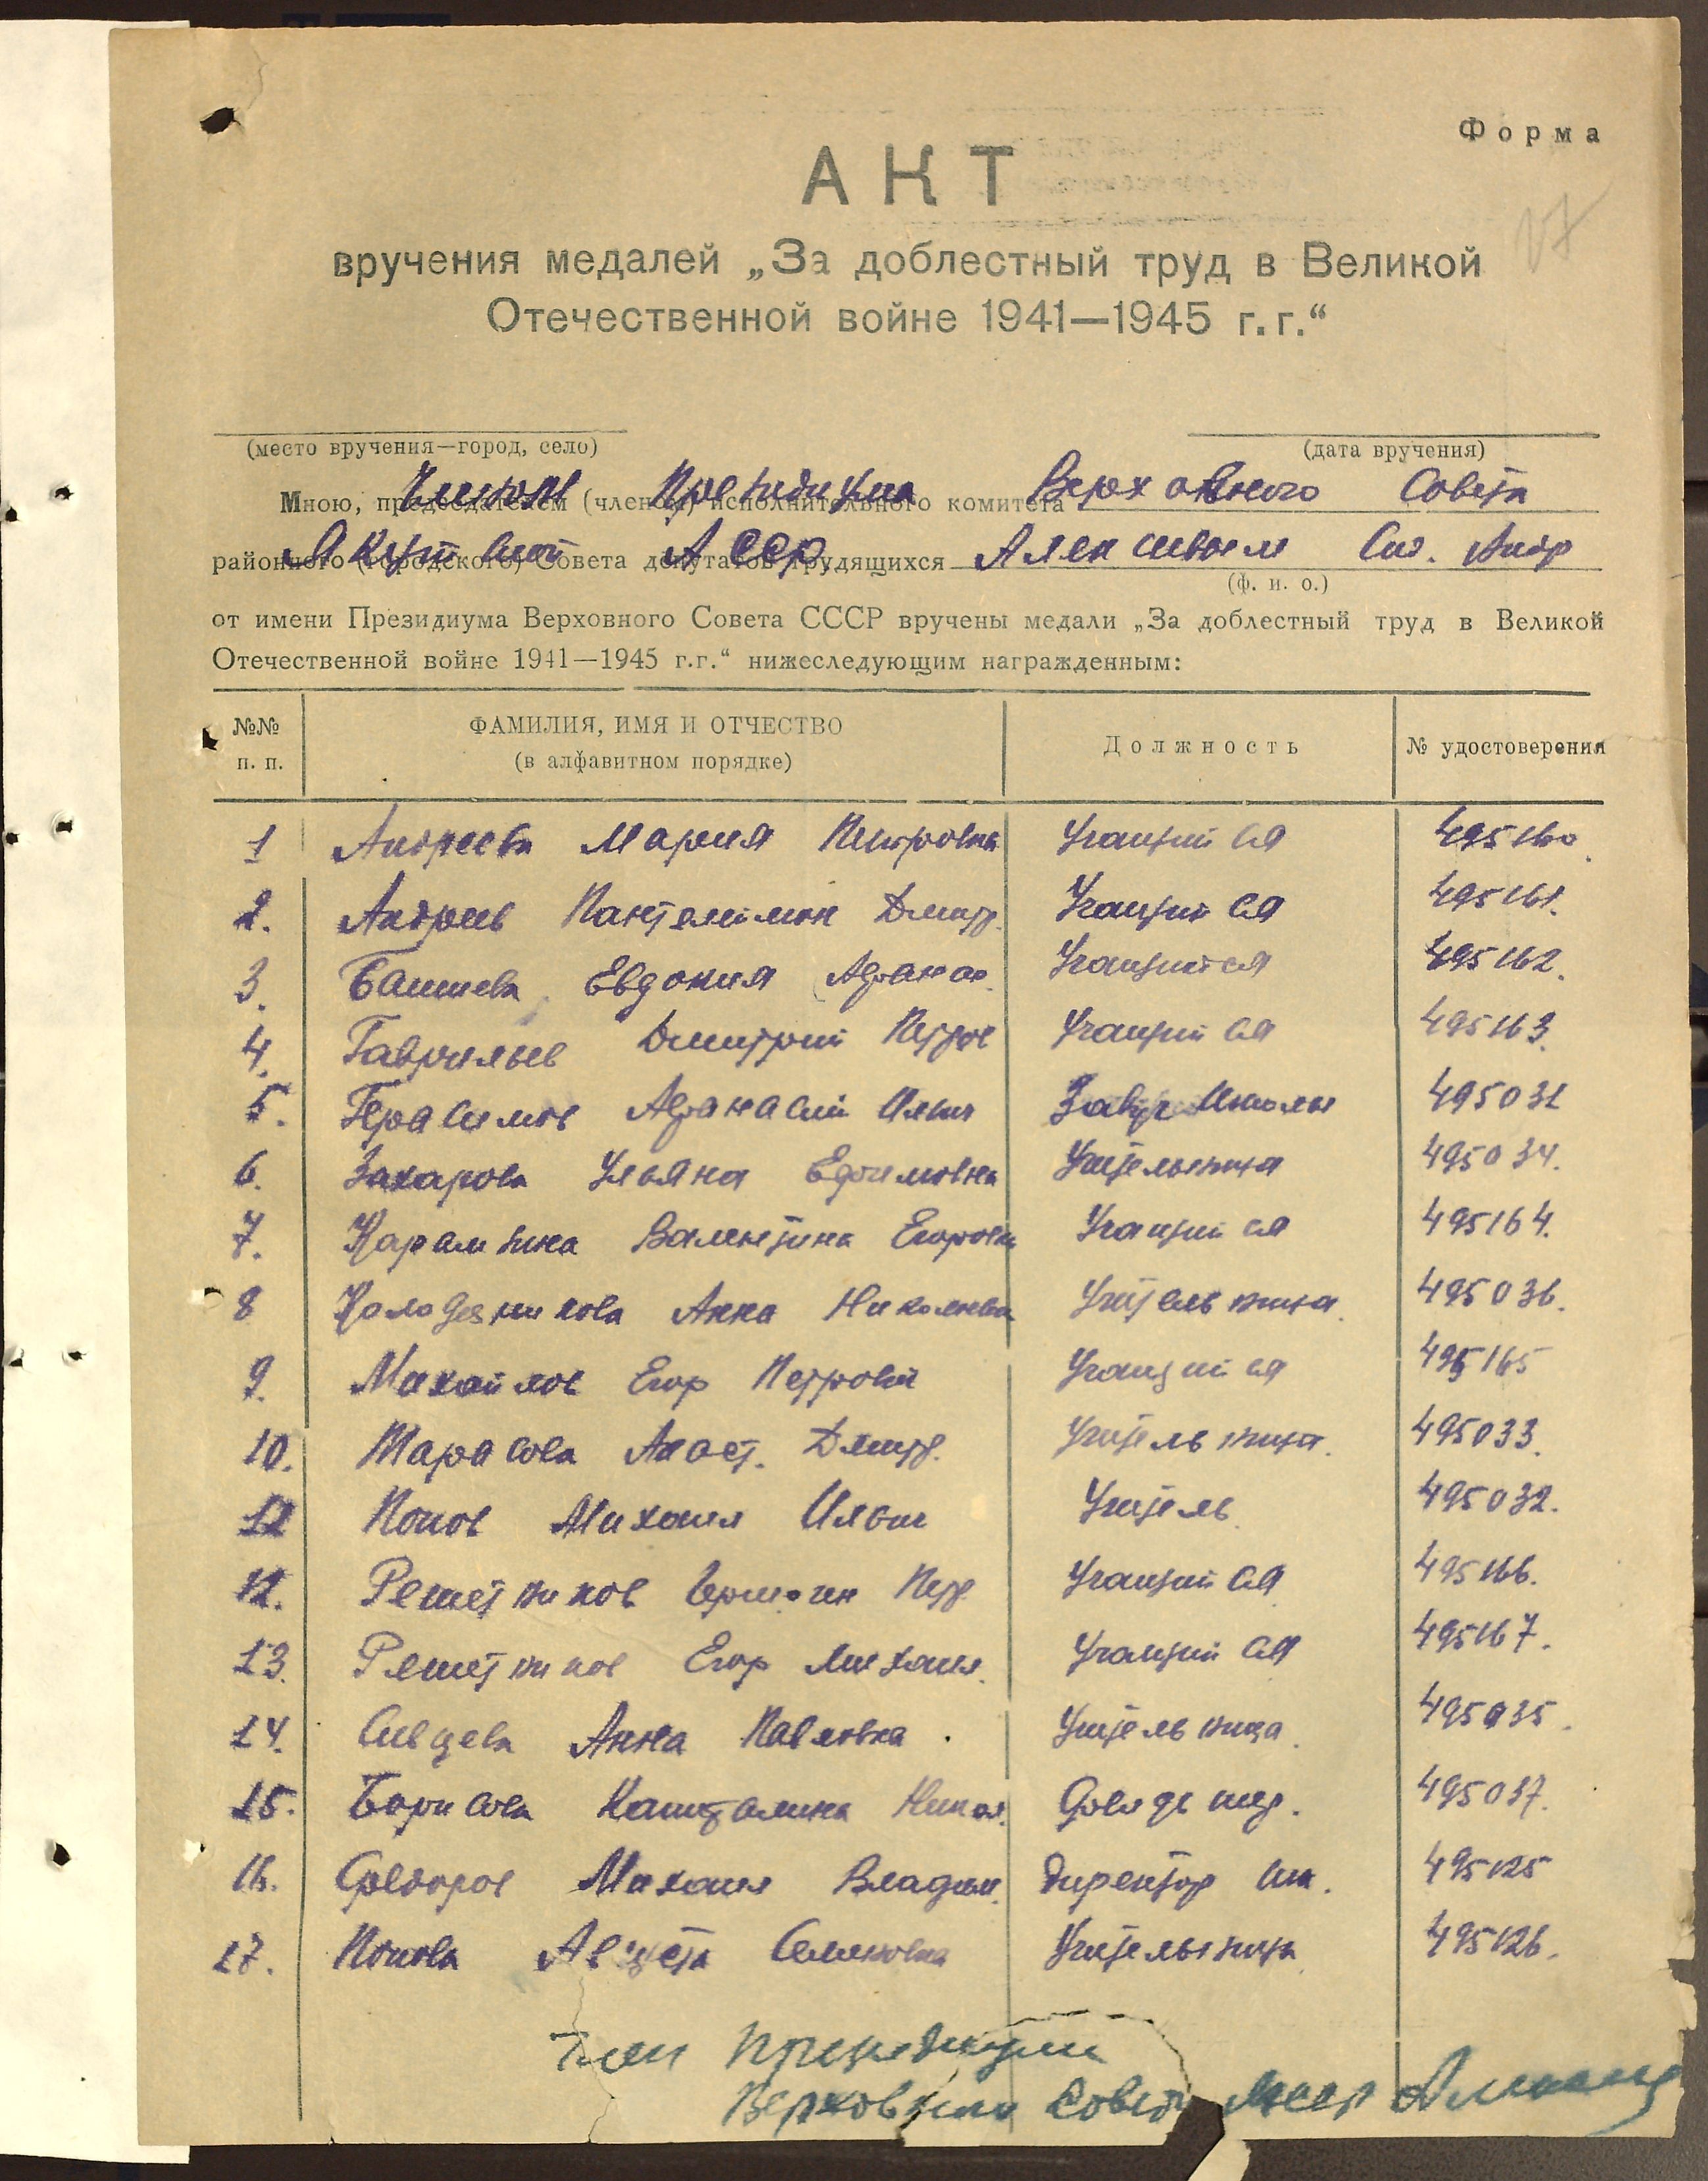 Форма
17
АКТ
вручения медалей „За доблестный труд в Великой
Отечественной войне 1941—1945 г.г.“
(место вручения—город, село)
(дата вручения)
Членом Президиума Верховного Совета
Мною, председателем (членом) исполнительного комитета
Якутской АССР Алексеевым Сш. Андр
районного (городского) Совета депутатов трудящихся
(ф. и. о.)
от имени Президиума Верховного Совета СССР вручены медали „За доблестный труд в Великой
Отечественной войне 1941—1945 г.г.“ нижеследующим награжденным:
№№ п. п. ФАМИЛИЯ, ИМЯ И ОТЧЕСТВО (в алфавитном порядке) Должность № удостоверения
1 Андреева Мария Петровна Учащийся 495160.
2. Андреев Пантелеймон Дмитр. Учащийся 495161.
3. Башиева Евдокия Афанас. Учащийся 495162.
4. Гаврильев Дмитрий Петров Учащийся 495163.
5. Герасимов Афанасий Ильич Завуч Школы 495031
6. Захарова Ульяна Ефимовна Учительница 495034.
7. Карамзина Валентина Егоровна Учащийся 495164.
8 Колодезникова Анна Николаевна Учительница. 495036.
9. Михайлов Егор Петрович Учащийся 495165
10. Тарасова Анаст. Дмитр. Учительница. 495033.
11 Попов Михаил Ильич Учитель. 495032.
12. Решетников Гермоген Петр. Учащийся 495166.
13. Решетников Егор Михаил. Учащийся 495167.
14. Сивцева Анна Павловна. Учительница. 495035.
15. Борисова Капиталина Никол. 495037.
16. Федоров Михаил Владим. Директор шк. 495125
17. Попова Августа Семеновна Учительница 495126.
Член Президиума
Верховного Совета ЯАССР